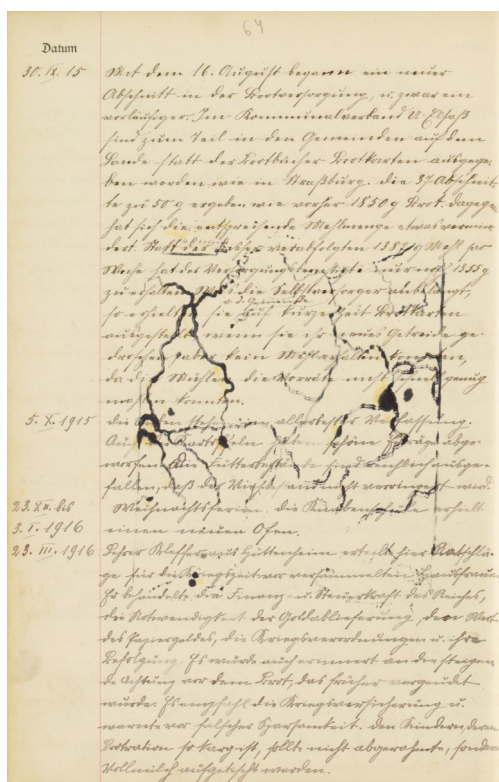 64
Datum
30. IX. 15 Mit dem 16. August begann ein neuer
Abschnitt in der Brotversorgung, u. zwar ein
vorläufiger. Im Kommunalverband U. Elsaß
sind zum Teil in den Gemeinden auf dem
Lande statt der Brotbücher Brotkarten ausgege-
ben worden wie in Straßburg. Die 37 Abschnit-
te zu 50 g ergeben wie vorher 1850 g Brot. Dagegen
hat sich die entsprechende Mehlmenge etwas vermin-
dert. Statt der bisher verabfolgten 1387 g Mehl pro
Woche hat der Versorgungsberechtigte nur noch 1355 g
zu erhalten. Was die Selbstversorger anbelangt,
v. d. Gemeinde
so erhielten sie auf kurze Zeit Brotkarten
ausgestellt, wenn sie ihr neues Getreide ge-
droschen, aber kein Mehl erhalten konnten,
da die Mühlen die Vorräte nicht schnell genug
mahlen konnten.
5. X. 1915 Die stehen in allerbester Verfassung.
Auch die Kartoffeln haben schöne Erträge abge-
worfen. Die Futterbestände sind reichlich ausge-
fallen, daß der Viehstand nicht verringert wird.
23. XII. bis Weihnachtsferien. Die Knabenschule erhält
3. I. 1916 einen neuen Ofen.
23. III. 1916 Lehrer Kleffer aus Hüttenheim erteilt hier Ratschlä-
ge für die Kriegszeit vor versammelten Hausfrauen.
Er behandelte die Finanz- u. Steuerkraft des Reiches,
die Notwendigkeit der Goldablieferung, den Wert
des Papiergeldes, die Kriegsverordnungen u. ihre
Befolgung. Es wurde auch erinnert an die steigen-
de Achtung vor dem Brot, das früher vergeudet
wurde. Er empfahl die Kriegsversicherung u.
warnte vor falscher Sparsamkeit. Den Kindern, deren
Brotration so karg ist, sollte nicht abgerahmte, sondern
Vollmilch aufgetischt werden.